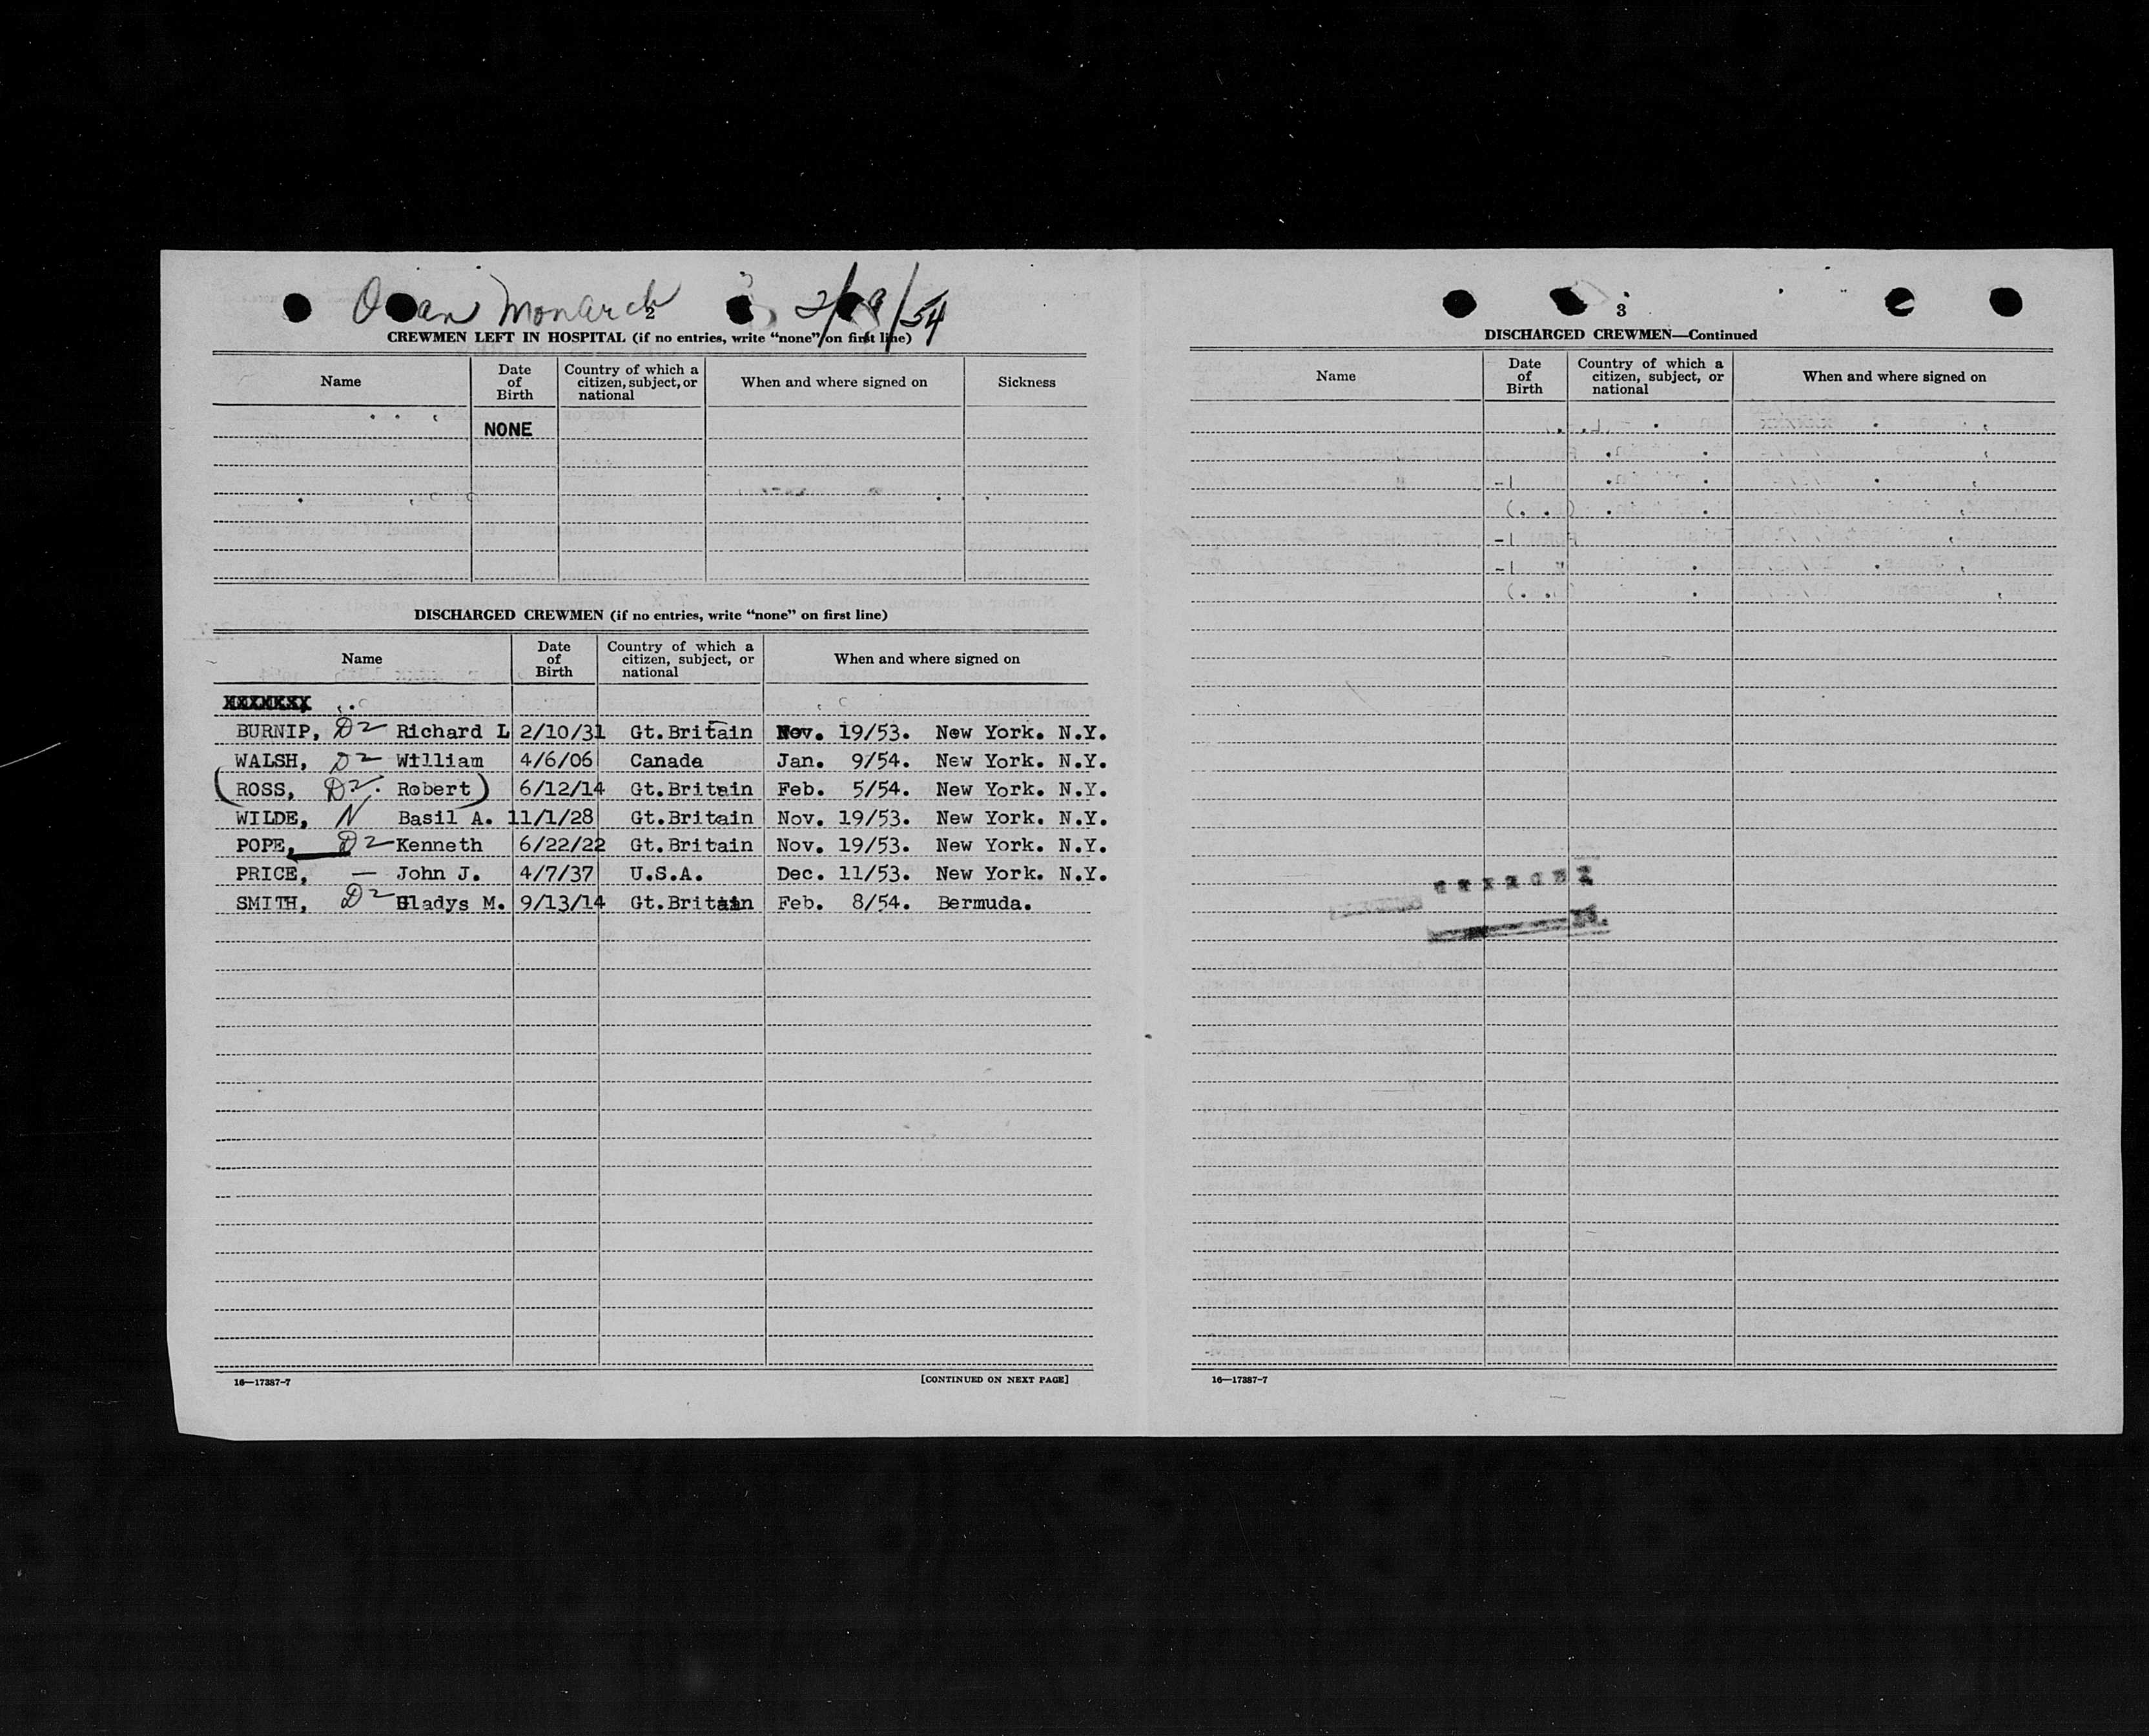 Ocean Monarch 2/19/54
2
CREWMEN LEFT IN HOSPITAL (if no entries, write “none” on first line)
Name Date of Birth Country of which a citizen, subject, or national When and where signed on Sickness
NONE
DISCHARGED CREWMEN (if no entries, write “none” on first line)
Name Date of Birth Country of which a citizen, subject, or national When and where signed on
BURNIP, D2 Richard L 2/10/31 Gt.Britain Nov. 19/53. New York. N.Y.
WALSH, D2 William 4/6/06 Canada Jan. 9/54. New York. N.Y.
(ROSS, D2. Robert) 6/12/14 Gt.Britain Feb. 5/54. New York. N.Y.
WILDE, N Basil A. 11/1/28 Gt.Britain Nov. 19/53. New York. N.Y.
POPE, D2 Kenneth 6/22/22 Gt.Britain Nov. 19/53. New York. N.Y.
PRICE, — John J. 4/7/37 U.S.A. Dec. 11/53. New York. N.Y.
SMITH, D2 Gladys M. 9/13/14 Gt.Britain Feb. 8/54. Bermuda.
16—17387-7 [CONTINUED ON NEXT PAGE]
3
DISCHARGED CREWMEN—Continued
Name Date of Birth Country of which a citizen, subject, or national When and where signed on
16—17387-7